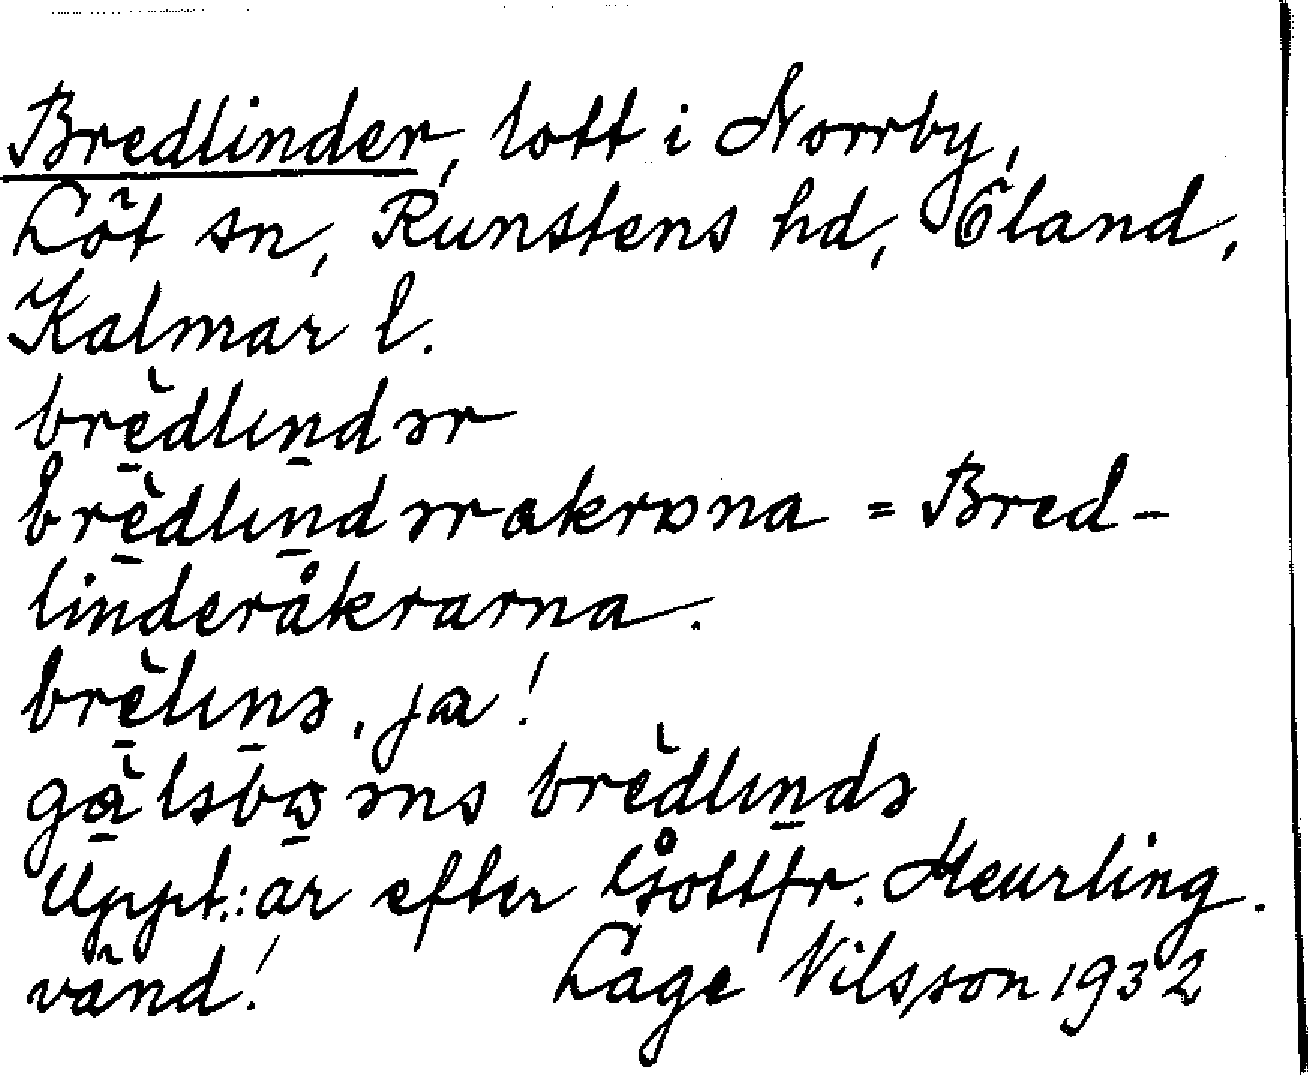 Bredlinder, lott i Norrby,
Löt sn, Runstens hd, Öland,
Kalmar l.
brèdlındər
brèdlındərakrɒna = Bred-
linderåkrarna.
brèlınə, ja!
gàlsbɷəns brèdlındə
Uppt.:ar efter Gottfr. Meurling.
vänd! Lage Nilsson 1932